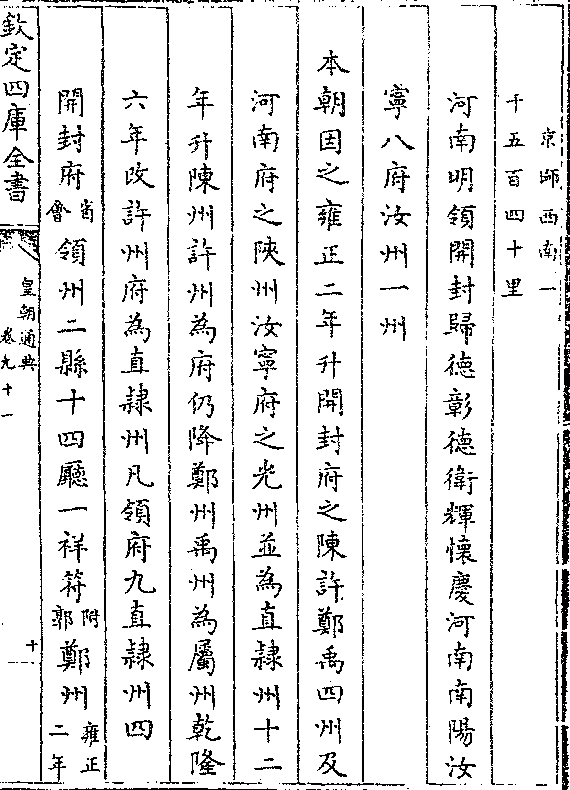 京師西南一
千五百四十里
河南明領開封歸德彰德衛輝懷慶河南南陽汝
寧八府汝州一州
本朝因之雍正二年升開封府之陳許鄭禹四州及
河南府之陜州汝寧府之光州並為直隸州十二
年升陳州許州為府仍降鄭州禹州為屬州乾隆
六年改許州府為直隸州凡領府九直隸州四
開封府省會領州二縣十四廳一祥符附郭鄭州雍正二年
欽定四庫全書
皇朝通典
卷九十一
十